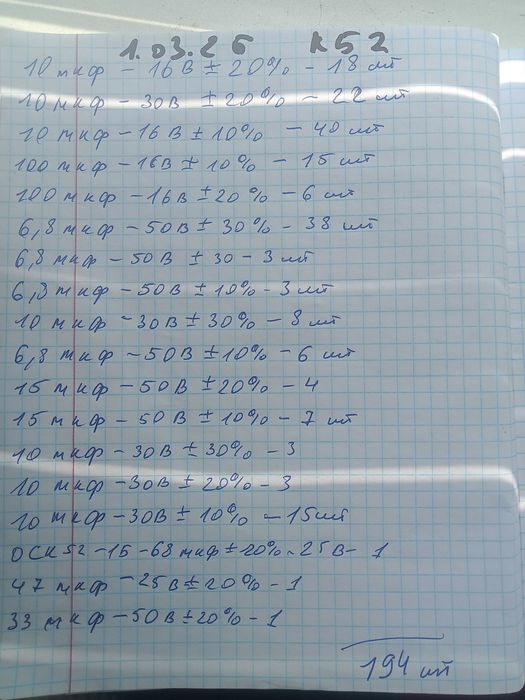 1.03.26 К52
10 мкф – 16 В ± 20% – 18 шт
10 мкф – 30В ± 20% – 22 шт
10 мкф – 16 В ± 10% – 40 шт
100 мкф – 16В ± 10% – 15 шт
100 мкф – 16В ± 20% – 6 шт
6,8 мкф – 50В ± 30% – 38 шт
6,8 мкф – 50В ± 30 – 3 шт
6,8 мкф – 50В ± 10% – 3 шт
10 мкф – 30В ± 30% – 8 шт
6,8 мкф – 50В ± 10% – 6 шт
15 мкф – 50В ± 20% – 4
15 мкф – 50В ± 10% – 7 шт
10 мкф – 30В ± 30% – 3
10 мкф – 30В ± 20% – 3
10 мкф – 30В ± 10% – 15шт
ОСК52 – 15 – 68 мкф ± 20% – 25В – 1
47 мкф – 25В ± 20% – 1
33 мкф – 50В ± 20% – 1
194 шт